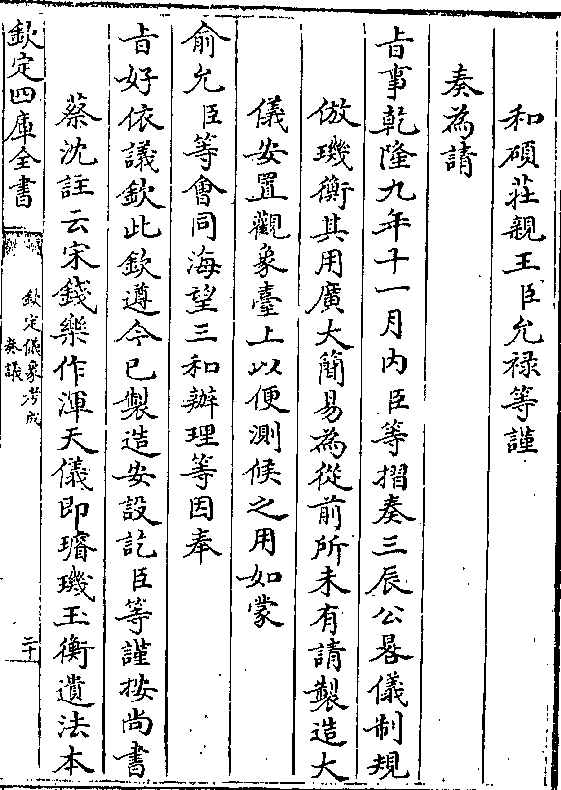 和碩莊親王臣允祿等謹
奏為請
旨事乾隆九年十一月內臣等摺奏三辰公晷儀制規
倣璣衡其用廣大簡易為從前所未有請製造大
儀安置觀象臺上以便測候之用如蒙
俞允臣等會同海望三和辦理等因奉
旨好依議欽此欽遵今已製造安設訖臣等謹按尚書
蔡沈註云宋錢樂作渾天儀即璿璣玉衡遺法本
欽定四庫全書
欽定儀象考成
奏議
二十